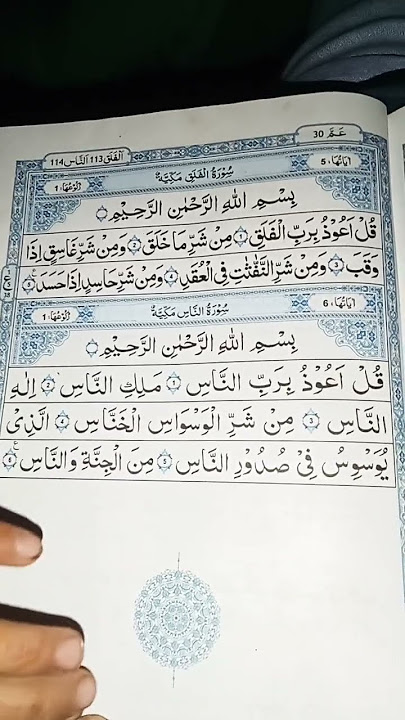 الفلق 113 الناس 114
عم 30
اٰیاتها، 5 سُوْرَةُ الْفَلَقِ مَكِّيَّةٌ رُكُوْعُهَا، 1
بِسْمِ اللّٰهِ الرَّحْمٰنِ الرَّحِيْمِ
قُلْ اَعُوْذُ بِرَبِّ الْفَلَقِ ۙ1 مِنْ شَرِّ مَا خَلَقَ ۙ2 وَمِنْ شَرِّ غَاسِقٍ اِذَا
وَقَبَ ۙ3 وَمِنْ شَرِّ النَّفّٰثٰتِ فِى الْعُقَدِ ۙ4 وَمِنْ شَرِّ حَاسِدٍ اِذَا حَسَدَ 5
اٰیاتها، 6 سُوْرَةُ النَّاسِ مَكِّيَّةٌ رُكُوْعُهَا، 1
بِسْمِ اللّٰهِ الرَّحْمٰنِ الرَّحِيْمِ
قُلْ اَعُوْذُ بِرَبِّ النَّاسِ ۙ1 مَلِكِ النَّاسِ ۙ2 اِلٰهِ
النَّاسِ ۙ3 مِنْ شَرِّ الْوَسْوَاسِ الْخَنَّاسِ ۙ4 الَّذِىْ
يُوَسْوِسُ فِىْ صُدُوْرِ النَّاسِ ۙ5 مِنَ الْجِنَّةِ وَالنَّاسِ 6